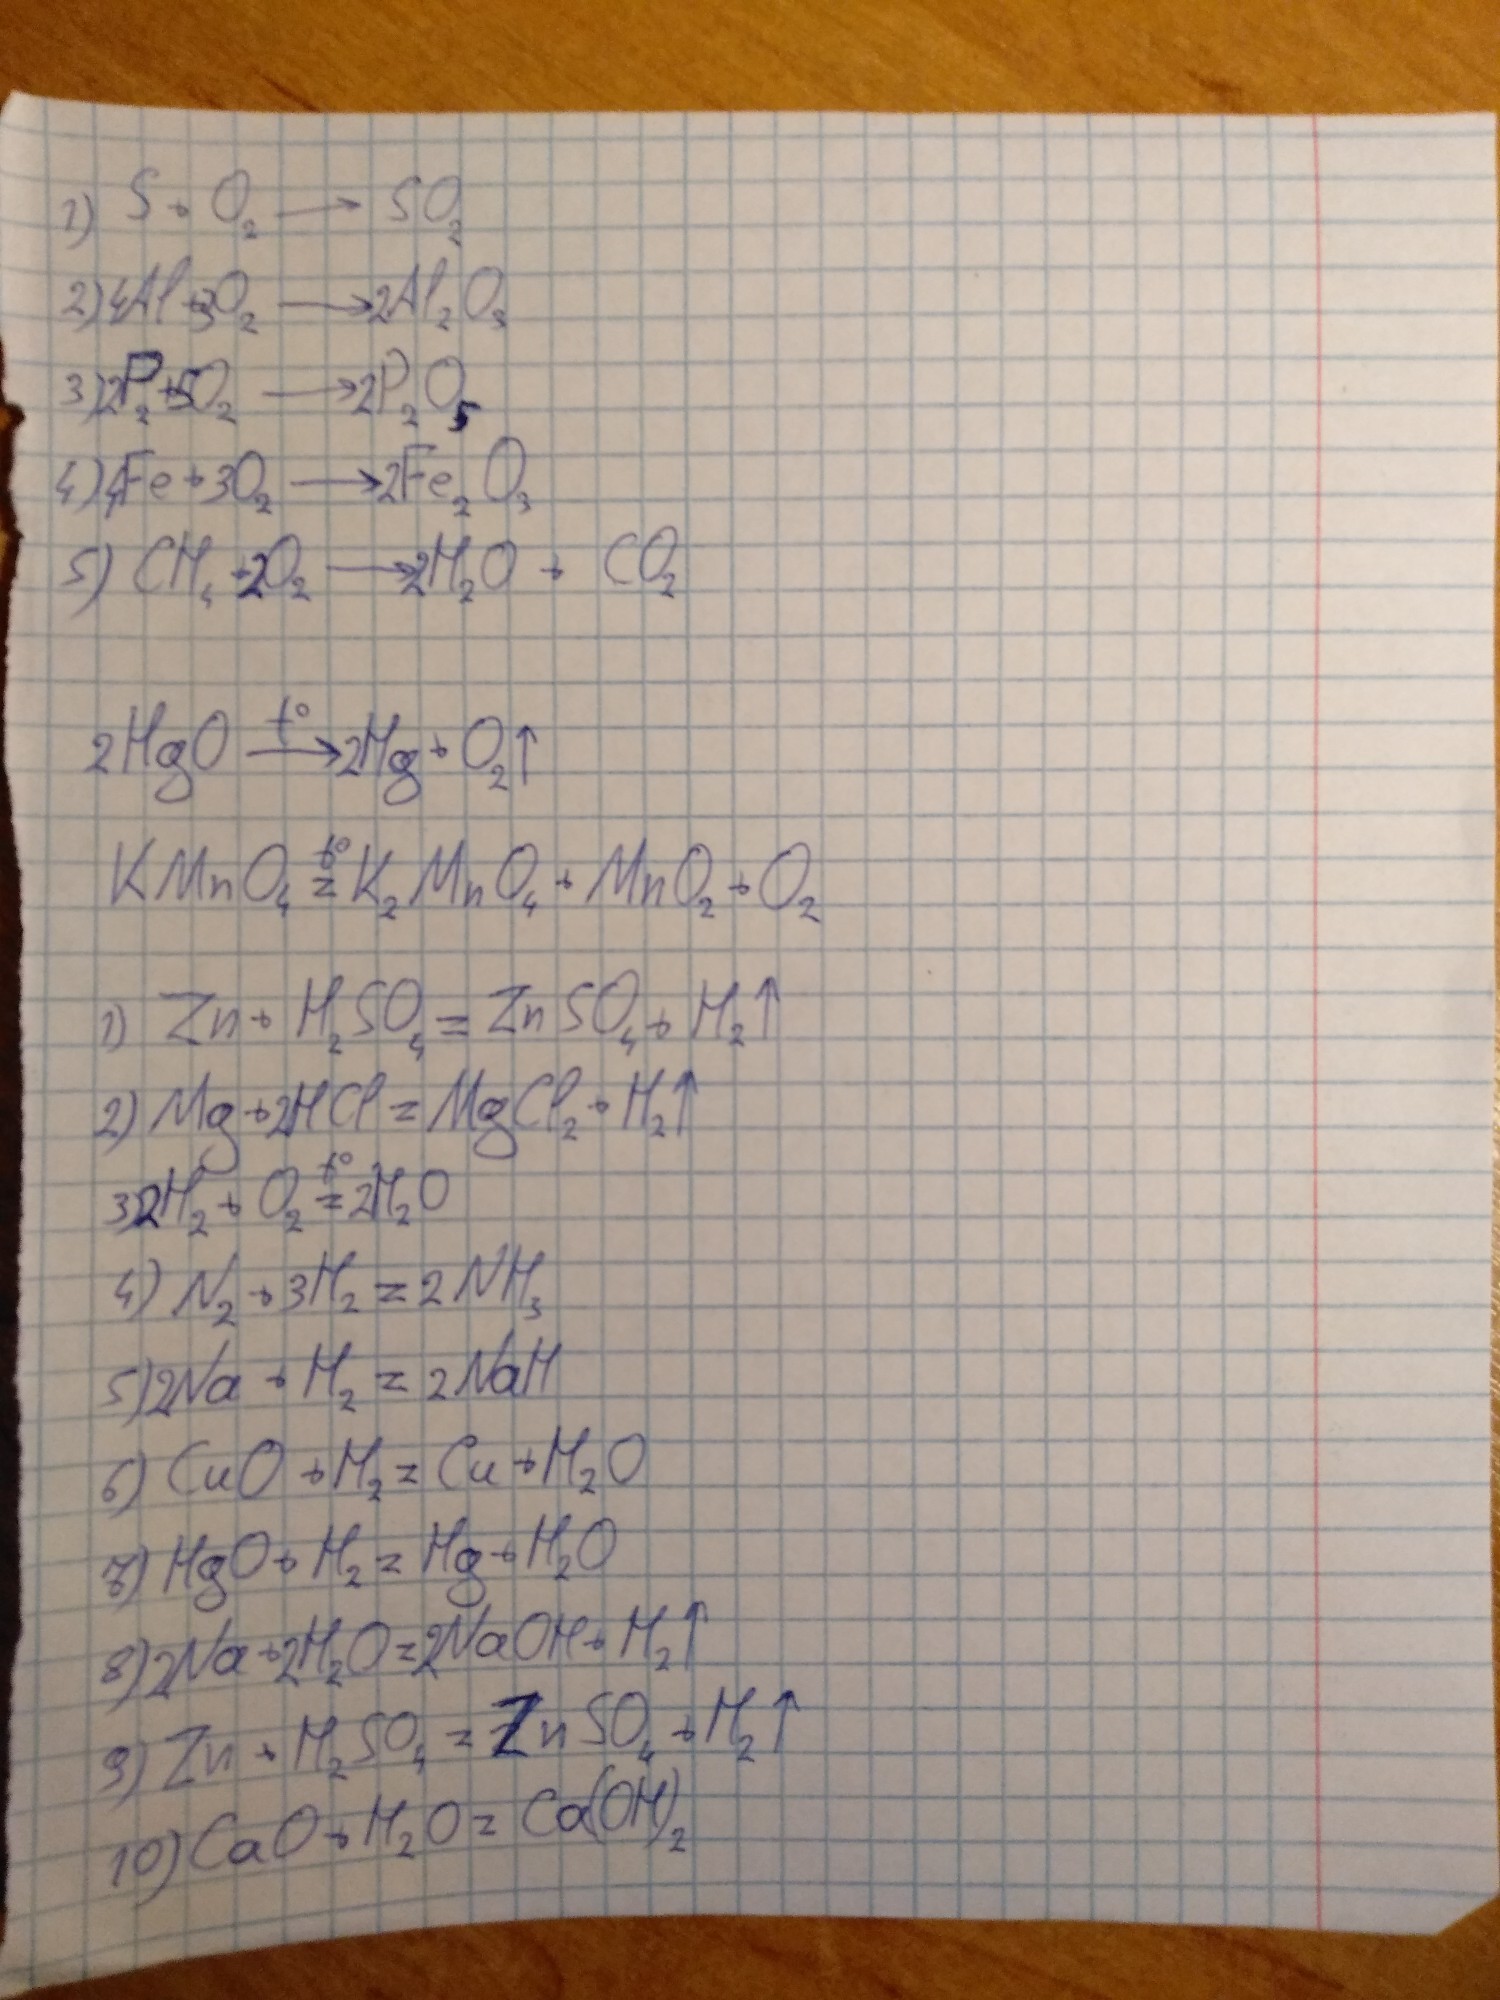 1) S + O₂ → SO₂
2) 4Al + 3O₂ → 2Al₂O₃
3) 2P₂ + 5O₂ → 2P₂O₅
4) 4Fe + 3O₂ → 2Fe₂O₃
5) CH₄ + 2O₂ → 2H₂O + CO₂
2HgO →(t°) 2Hg + O₂↑
KMnO₄ =(t°) K₂MnO₄ + MnO₂ + O₂
1) Zn + H₂SO₄ = ZnSO₄ + H₂↑
2) Mg + 2HCl = MgCl₂ + H₂↑
3) 2H₂ + O₂ =(t°) 2H₂O
4) N₂ + 3H₂ = 2NH₃
5) 2Na + H₂ = 2NaH
6) CuO + H₂ = Cu + H₂O
7) HgO + H₂ = Hg + H₂O
8) 2Na + 2H₂O = 2NaOH + H₂↑
9) Zn + H₂SO₄ = ZnSO₄ + H₂↑
10) CaO + H₂O = Ca(OH)₂